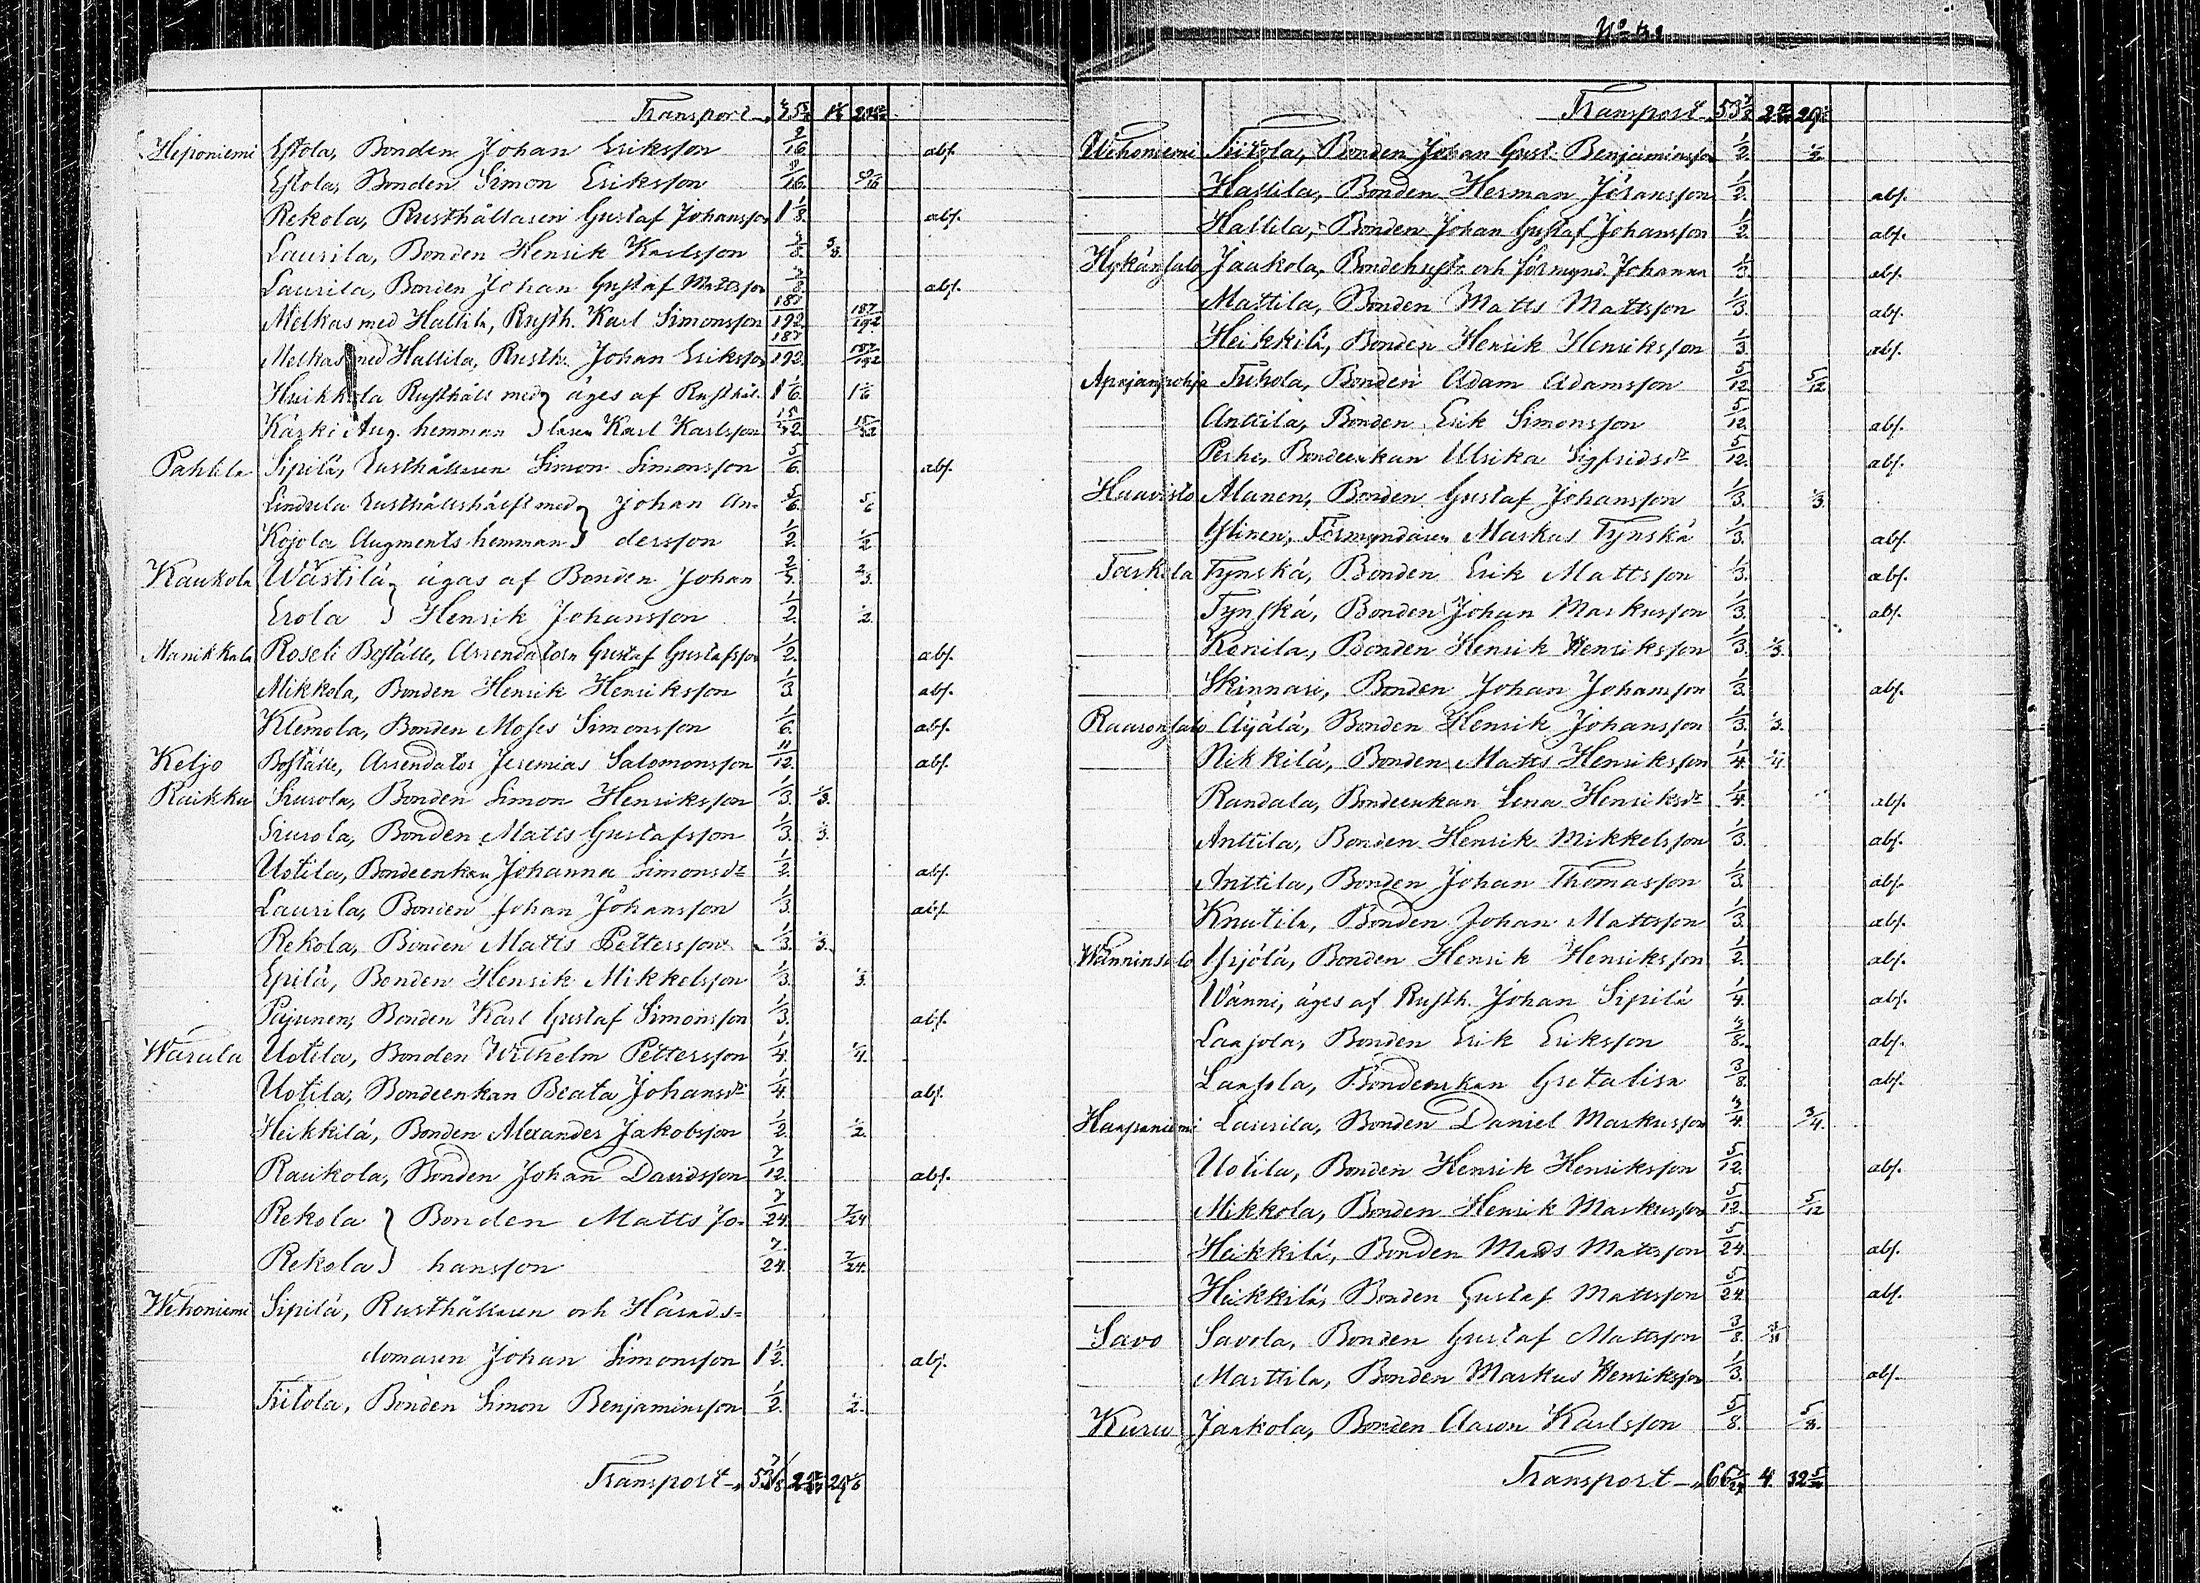 Transport
Heponiemi Estola, Bonden Johan Eriksson 9/16 abs.
Estola, Bonden Simon Eriksson 9/16 9/16
Rekola, Rusthållaren Gustaf Johansson 1 1/8 abs.
Laurila, Bonden Henrik Karlsson
Laurila, Bonden Johan Gustaf Mattsson abs.
Melkas med Hallila, Rusth. Karl Simonsson 187/192 187/192
Melkas med Hallila, Rusth. Johan Eriksson 187/192 187/192
Heikkola Rusthåll med } äges af Rusthål- 1 1/6 1 1/6
Karki Aug. hemman } laren Karl Karlsson
Pahkla Sipilä, Rusthållaren Simon Simonsson 5/6 abs.
Lindula Rusthållshälft med } Johan An- 5/6 5/6
Kojola Augments hemman } dersson 1/2 1/2
Kaukola Wästilä } ägas af Bonden Johan 2/3 2/3
Erola } Henrik Johansson 1/2 1/2
Manikkala Roseli Boställe, Arrendatorn Gustaf Gustafsson 1/2 abs.
Mikkola, Bonden Henrik Henriksson 1/3 abs.
Klemola, Bonden Moses Simonsson 1/6 abs.
Keljo Boställe, Arrendator Jeremias Salomonsson 11/12 abs.
Raikku Siurola, Bonden Simon Henriksson 1/3 1/3
Siurola, Bonden Matts Gustafsson 1/3 1/3
Uotila, Bondeenkan Johanna Simonsdr 1/2 abs.
Laurila, Bonden Johan Johansson 1/3 abs.
Rekola, Bonden Matts Pettersson 1/3 1/3
Epilä, Bonden Henrik Mikkelsson 1/3 1/3
Pajunen, Bonden Karl Gustaf Simonsson 1/3 abs.
Warala Uotila, Bonden Wilhelm Pettersson 1/4 1/4
Uotila, Bondeenkan Beata Johansdr 1/4 abs.
Heikkilä, Bonden Alexander Jakobsson 1/2 1/2
Raukola, Bonden Johan Davidsson 7/12 abs.
Rekola } Bonden Matts Jo- 7/24 7/24
Rekola } hansson 7/24 7/24
Wehoniemi Sipilä, Rusthållaren och Härads-
domaren Johan Simonsson 1 1/2 abs.
Tiitola, Bonden Simon Benjaminsson 1/2 1/2
Transport
Transport
Wehoniemi Tiitola, Bonden Johan Gust. Benjaminsson 1/2 1/2
Hallila, Bonden Herman Göransson 1/2 abs.
Hallila, Bonden Johan Gustaf Johansson 1/2 abs.
Jaakola, Bondehustr. och förmynd. Johanna 1/3 abs.
Mattila, Bonden Matts Mattsson 1/3 abs.
Heikkilä, Bonden Henrik Henriksson 1/3 abs.
Tuhola, Bonden Adam Adamsson 5/12 5/12
Anttila, Bonden Erik Simonsson 5/12 abs.
Perho, Bondeenkan Ulrika Sigfridsdr 5/12 abs.
Haavisto Alanen, Bonden Gustaf Johansson 1/3 1/3
Ylinen, Förmyndaren Markus Tynskä 1/3 abs.
Taskila Tynskä, Bonden Erik Mattsson 1/3 abs.
Tynskä, Bonden Johan Markusson 1/3 abs.
Konila, Bonden Henrik Henriksson 1/3 1/3
Skinnari, Bonden Johan Johansson 1/3 abs.
Äijälä, Bonden Henrik Johansson 1/3 1/3
Nikkilä, Bonden Matts Henriksson 1/4 1/4
Randala, Bondeenkan Lena Henriksdr 1/4 abs.
Anttila, Bonden Henrik Mikkelsson 1/3 abs.
Anttila, Bonden Johan Thomasson 1/3 abs.
Knutila, Bonden Johan Mattsson 1/3 abs.
Wänninsalo Yrjölä, Bonden Henrik Henriksson 1/2 abs.
Wänni, äges af Rusth. Johan Sipilä 1/4 abs.
Laajola, Bonden Erik Eriksson 3/8 abs.
Laajola, Bondeenkan Gretalisa 3/8 abs.
Haapaniemi Laurila, Bonden Daniel Markusson 3/4 3/4
Uotila, Bonden Henrik Henriksson 5/12 abs.
Mikkola, Bonden Henrik Markusson 5/12 5/12
Heikkilä, Bonden Mads Mattsson 5/24 abs.
Heikkilä, Bonden Gustaf Mattsson 5/24 abs.
Savo Savola, Bonden Gustaf Mattsson 3/8 3/8
Marttila, Bonden Markus Henriksson 1/3 abs.
Kuru Jaakola, Bonden Aaron Karlsson 5/8 5/8
Transport